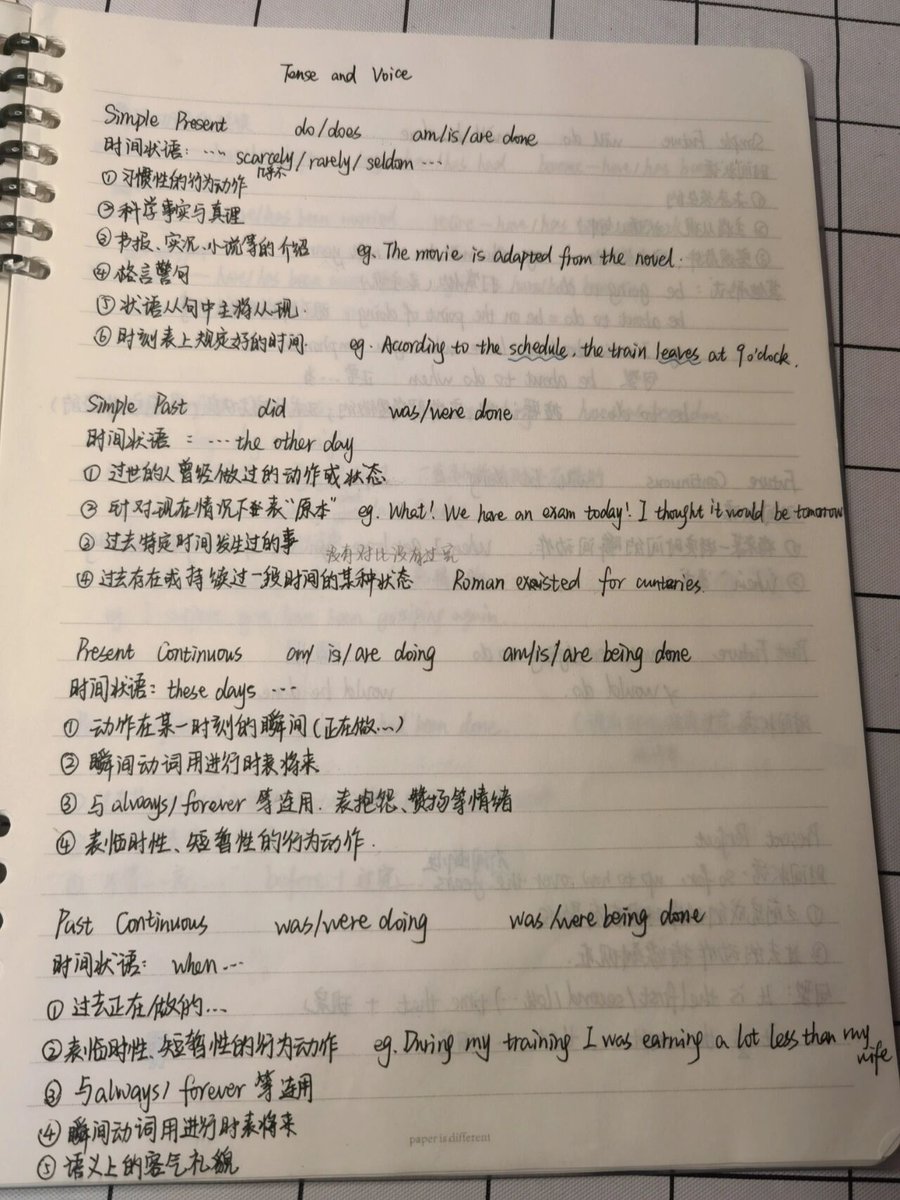 Tense and Voice
Simple Present do/does am/is/are done
时间状语: … scargely/rarely/seldom …
几乎不
① 习惯性的行为动作
② 科学事实与真理
③ 书报、实况、小说等的介绍 eg. The movie is adapted from the novel.
④ 格言警句
⑤ 状语从句中主将从现.
⑥ 时刻表上规定好的时间. eg. According to the schedule, the train leaves at 9 o'clock.
Simple Past did was/were done
时间状语: … the other day
① 过世的人曾经做过的动作或状态
② 针对现在情况下发表"原本" eg. What! We have an exam today! I thought it would be tomorrow
③ 过去特定时间发生过的事
没有对比没有过完
④ 过去存在或持续过一段时间的某种状态 Roman existed for cunteries.
Present Continuous am/is/are doing am/is/are being done
时间状语: these days …
① 动作在某一时刻的瞬间(正在做…)
② 瞬间动词用进行时表将来
③ 与always/forever等连用. 表抱怨、赞扬等情绪
④ 表临时性、短暂性的行为动作.
Past Continuous was/were doing was/were being done
时间状语: when …
① 过去正在做的…
② 表临时性、短暂性的行为动作 eg. During my training I was earning a lot less than my
wife
③ 与always/forever等连用
④ 瞬间动词用进行时表将来
⑤ 语义上的客气礼貌
paper is different